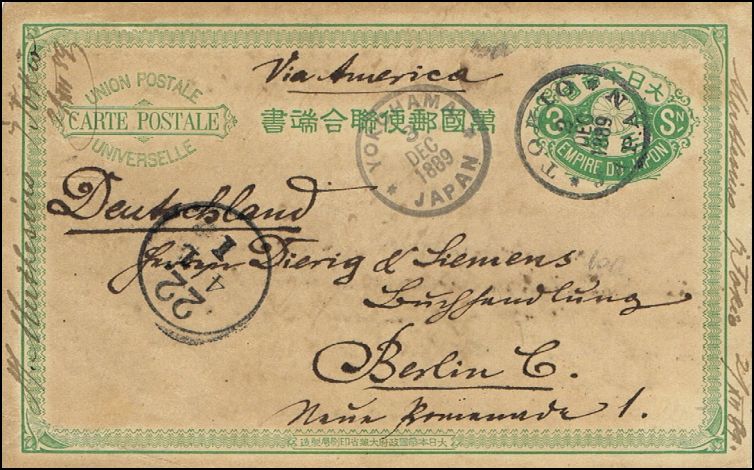 Via America
UNION POSTALE
CARTE POSTALE
UNIVERSELLE
萬國郵便聯合端書
大日本
3 Sn
EMPIRE DU JAPON
TOKIO JAPAN
DEC
1889
YOKOHAMA
3
DEC
1889
JAPAN
Deutschland
22
4
1
Dierig & Siemens
Buchhandlung
Berlin C.
Neue Promenade 1.
大日本帝國政府大藏省印刷局製造